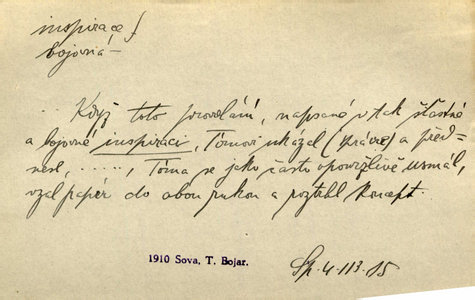 inspirace f
bojovná –
... Když toto provolání, napsané v tak šťastné
a bojovné inspiraci, Tómovi ukázal (Zpráva) a před-
nesl, ....., Tóma se jako často opovržlivě usmál,
vzal papír do obou rukou a roztrhl koncept.
1910 Sova, T. Bojar.
Sp. 4. 113. 15